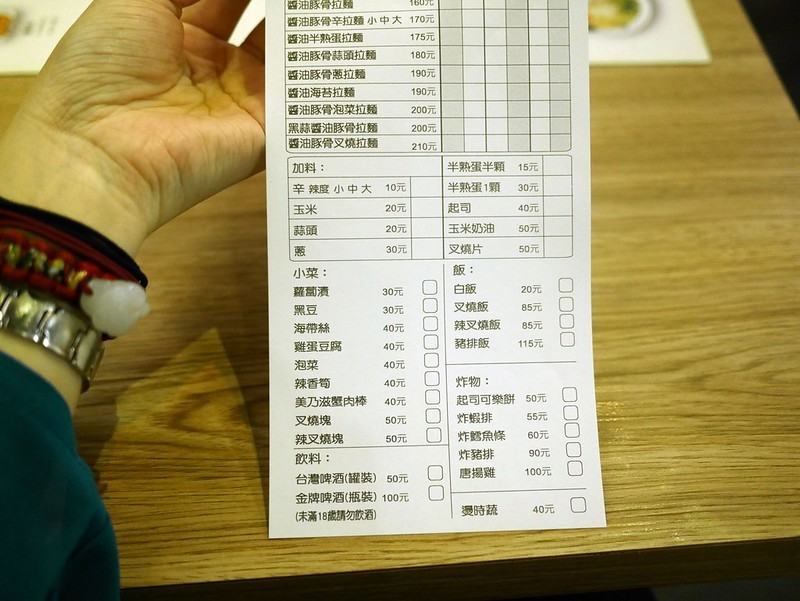 醬油豚骨拉麵 160元
醬油豚骨辛拉麵 小 中 大 170元
醬油半熟蛋拉麵 175元
醬油豚骨蒜頭拉麵 180元
醬油豚骨蔥拉麵 190元
醬油海苔拉麵 190元
醬油豚骨泡菜拉麵 200元
黑蒜醬油豚骨拉麵 200元
醬油豚骨叉燒拉麵 210元
加料：
辛 辣度 小 中 大 10元
玉米 20元
蒜頭 20元
蔥 30元
半熟蛋半顆 15元
半熟蛋1顆 30元
起司 40元
玉米奶油 50元
叉燒片 50元
小菜：
蘿蔔漬 30元
黑豆 30元
海帶絲 40元
雞蛋豆腐 40元
泡菜 40元
辣香筍 40元
美乃滋蟹肉棒 40元
叉燒塊 50元
辣叉燒塊 50元
飲料：
台灣啤酒(罐裝) 50元
金牌啤酒(瓶裝) 100元
(未滿18歲請勿飲酒)
飯：
白飯 20元
叉燒飯 85元
辣叉燒飯 85元
豬排飯 115元
炸物：
起司可樂餅 50元
炸蝦排 55元
炸鱈魚條 60元
炸豬排 90元
唐揚雞 100元
燙時蔬 40元